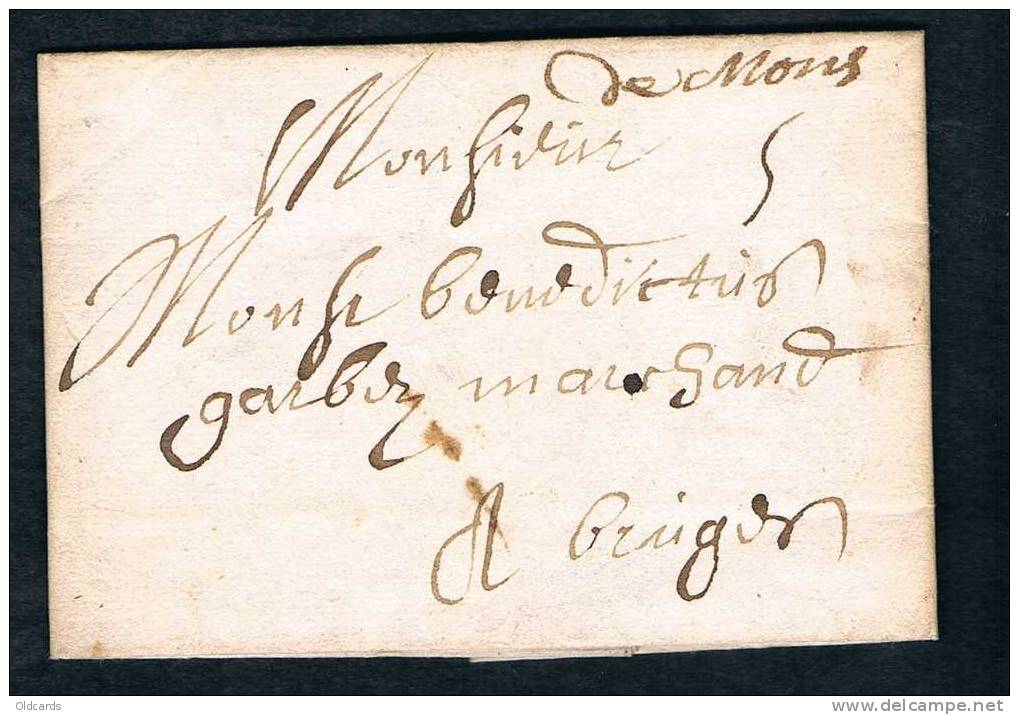 de Mons
Monsieur
5
Monsr benedictus
garbez marchand
A bruges
Oldcards
www.delcampe.net